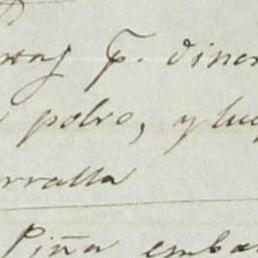 p. diner
polvo, y lueg
rralla
Piña emba